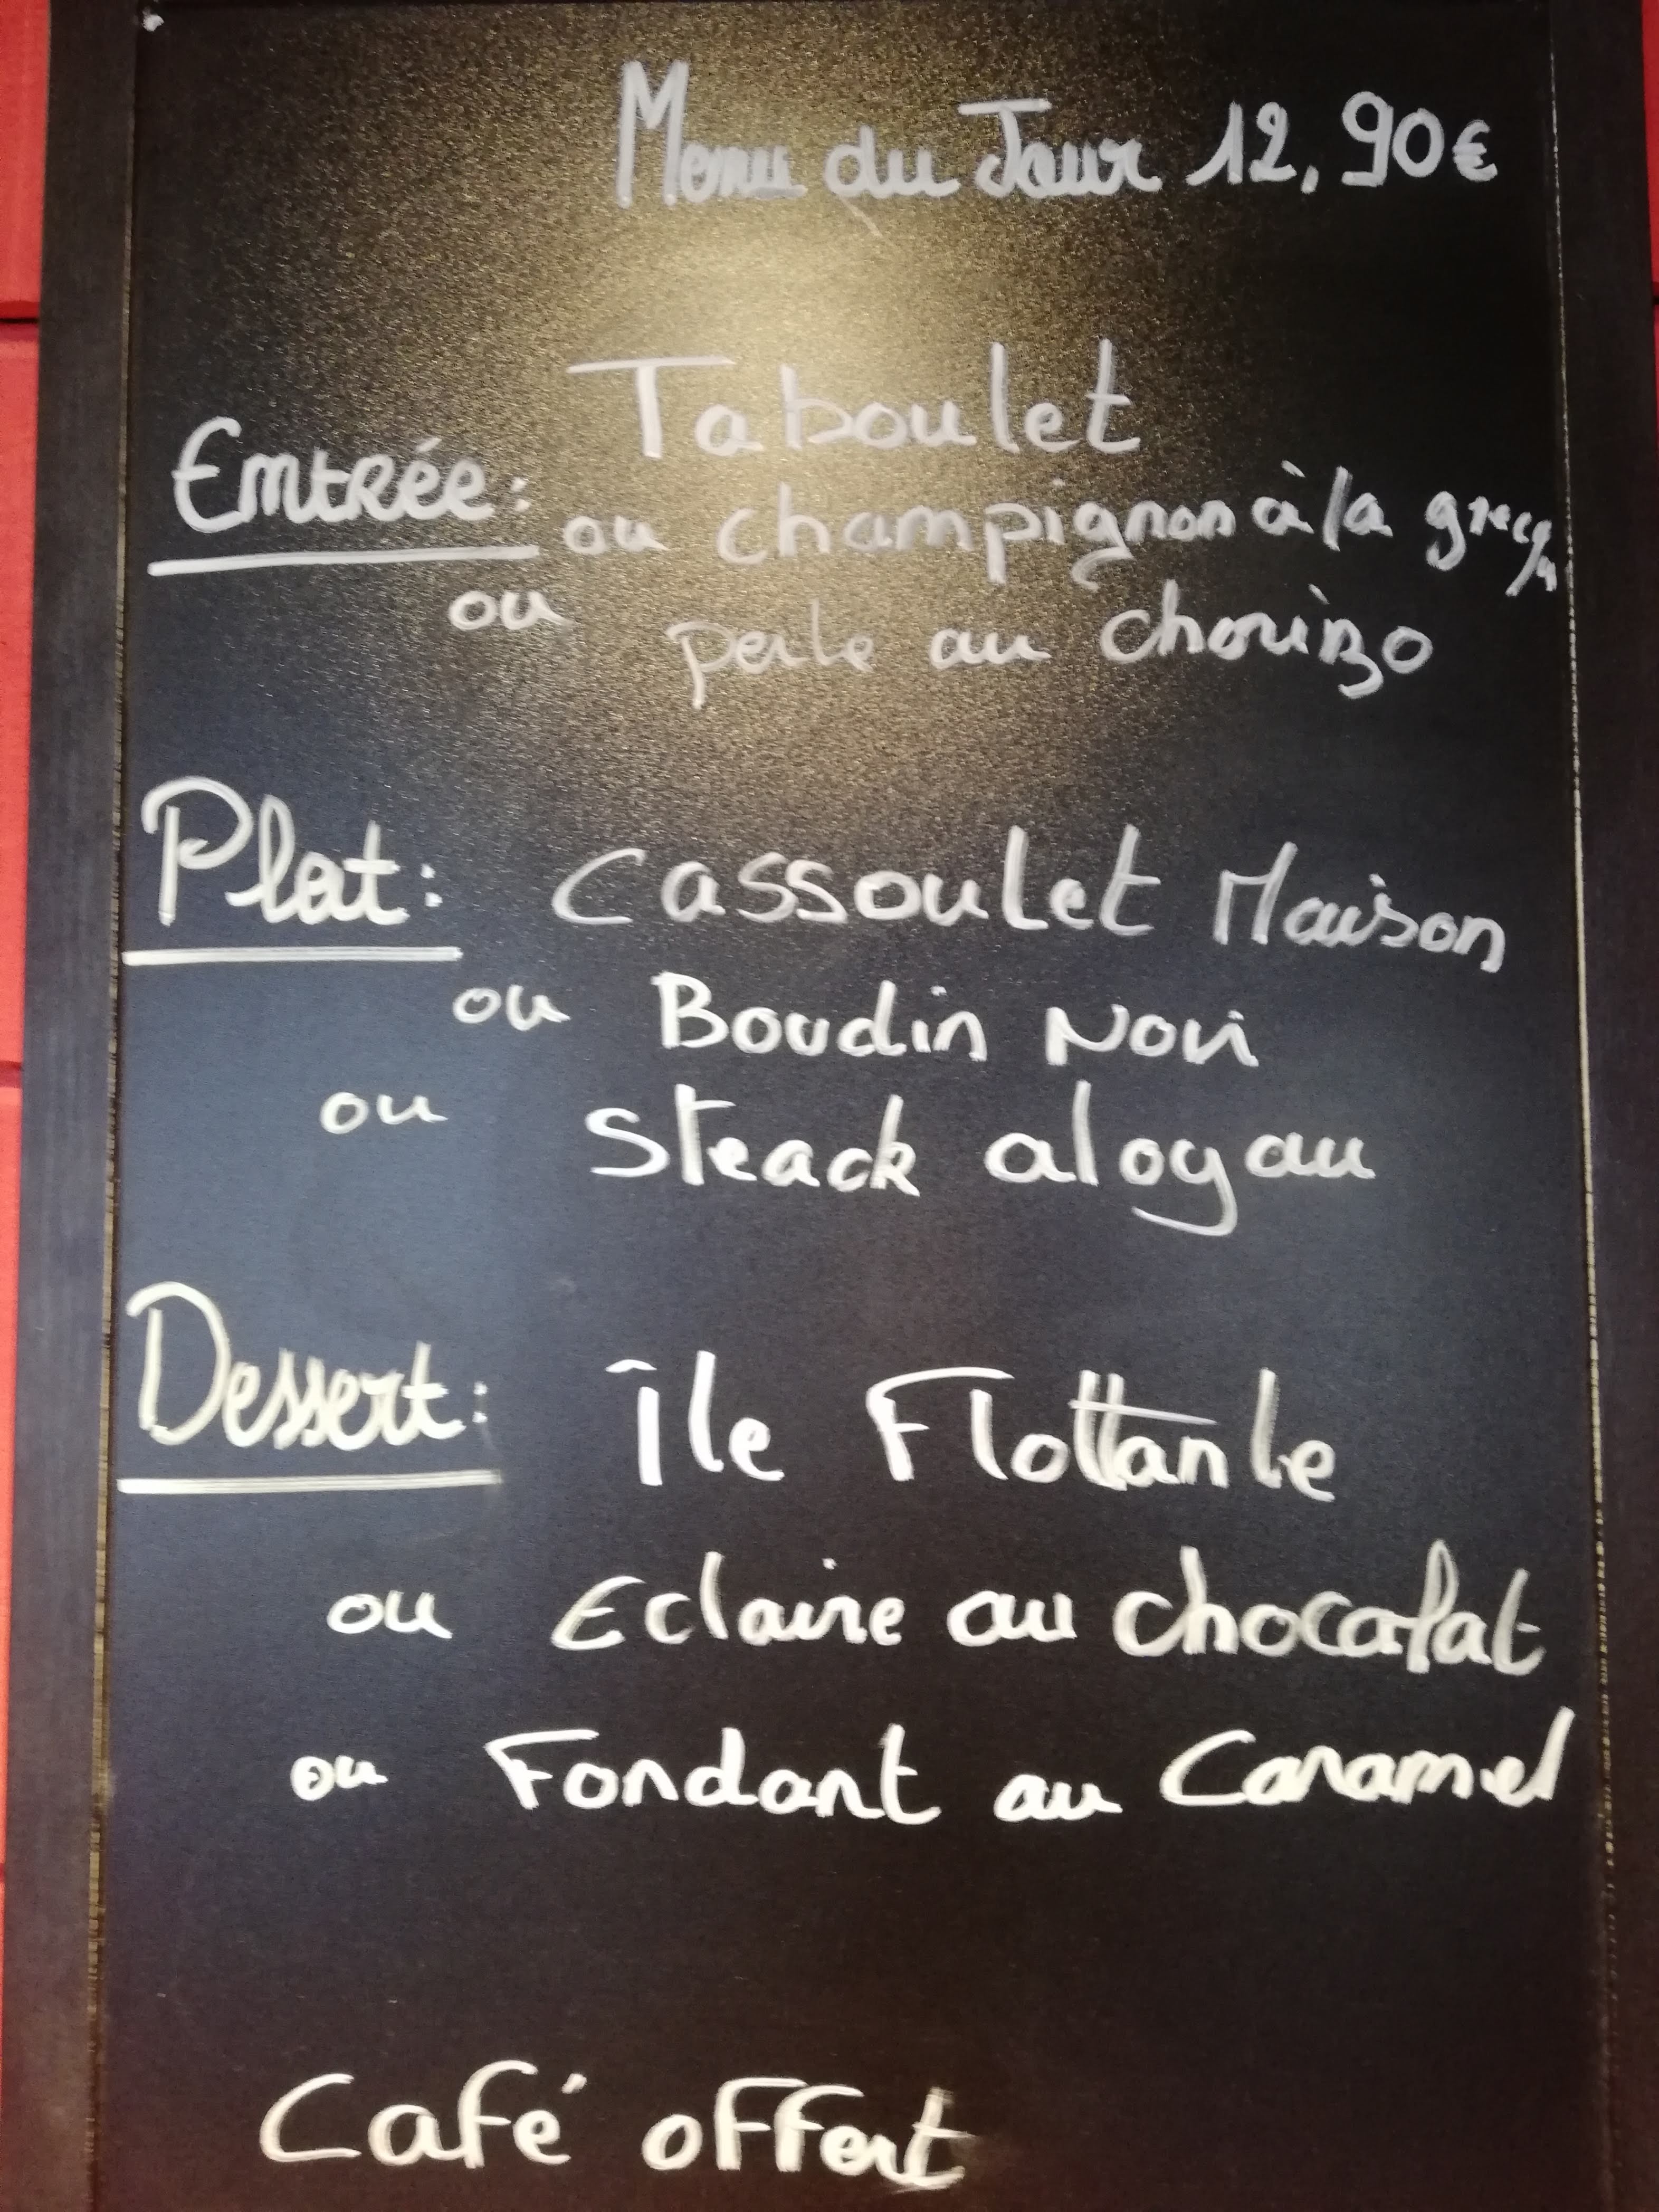 Menu du Jour 12,90€
Taboulet
Entrée:
ou champignon à la grecq
ou perle au chorizo
Plat: Cassoulet Maison
ou Boudin Noir
ou Steack aloyau
Dessert: Île Flottante
ou Eclaire au chocolat
ou Fondant au Caramel
Café offert